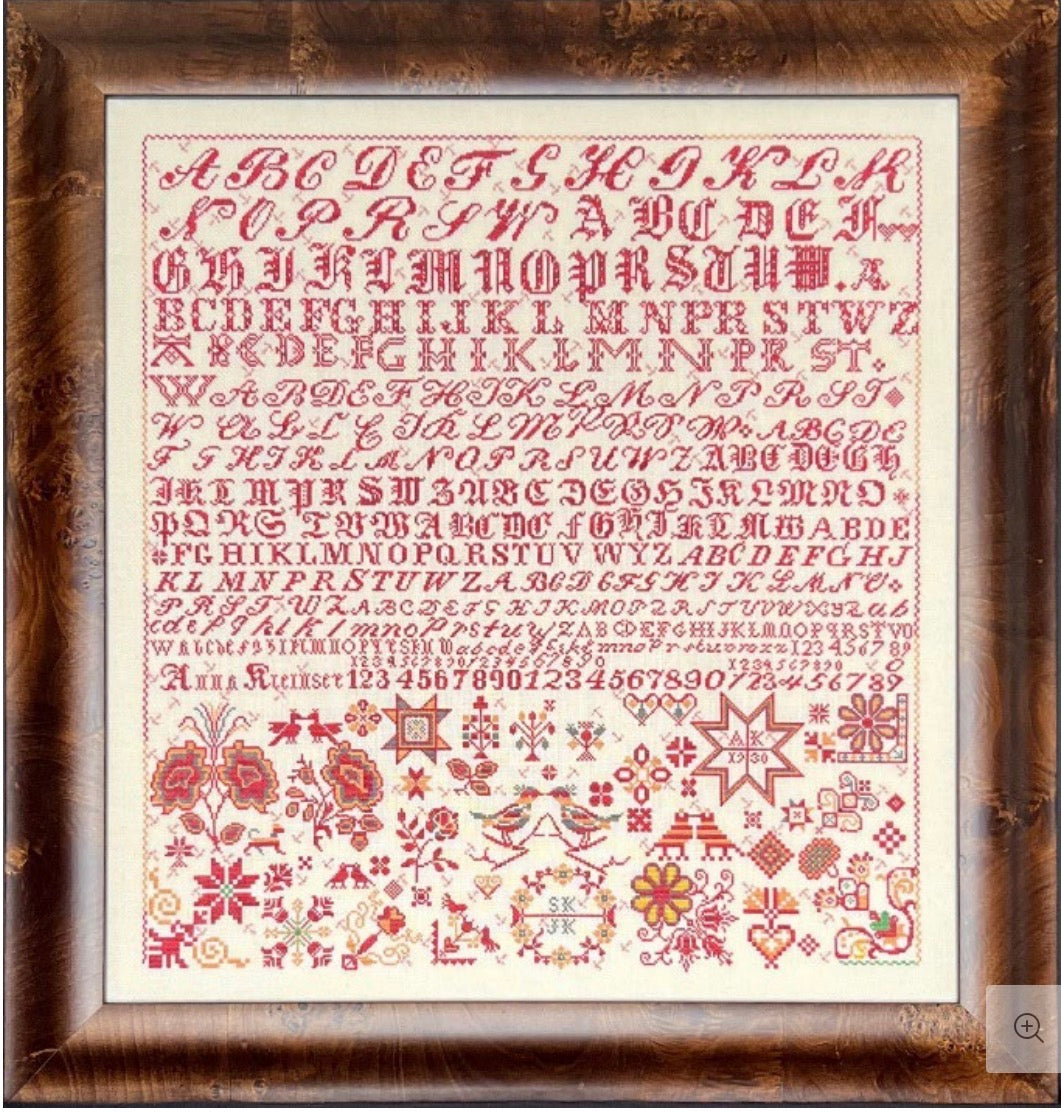 A B C D E F G H I K L M
N O P R S W A B C D E F
G H I K L M N O P R S T U W . A
B C D E F G H I J K L M N P R S T W Z
A B C D E F G H I K L M N P R S T .
W A B D E F H I K L M N P R S T
A B C D E
F G H I K L M N O P R S U W Z A B C D E G H
I K L M P R S W Z A B C D E G H J K L M N O
P Q R S T V W A B C D C F G H I K L M W A B D E
F G H I K L M N O P Q R S T U V W Y Z A B C D E F G H J
K L M N P R S T U W Z A B C D E F G H J K L M N O
P R S T U Z A B C D E F G H I K M O P Q R S T U V W X Y Z a b
c d e f h k l m n o p r s t u y Z A B C D E F G H I J K L M N O P Q R S T V
1 2 3 4 5 6 7 8 9
1 2 3 4 5 6 7 8 9 0 1 2 3 4 5 6 7 8 9 0 1 2 3 4 5 6 7 8 9 0 0
Anna 1 2 3 4 5 6 7 8 9 0 1 2 3 4 5 6 7 8 9 0 1 2 3 4 5 6 7 8 9
A K
1930
SK
JK